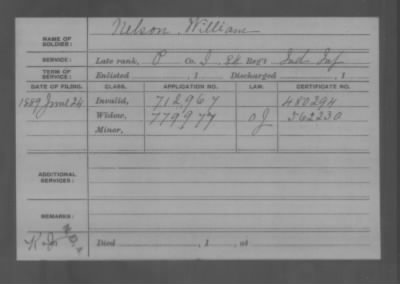 NAME OF SOLDIER: Nelson, William
SERVICE: Late rank, P Co. I, Reg't Ind Inf
TERM OF SERVICE: Enlisted , 1 Discharged , 1
DATE OF FILING. CLASS. APPLICATION NO. LAW. CERTIFICATE NO.
1889 June 24 Invalid, 712967 480294
Widow, 779977 O J 362230
Minor,
ADDITIONAL SERVICES:
REMARKS:
Died , 1 , at